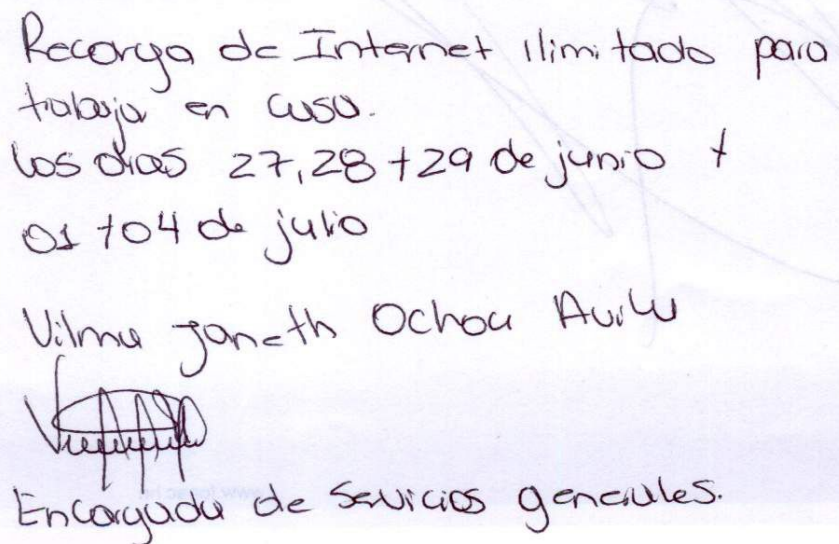 Recarga de Internet ilimitado para
trabajo en casa.
los dias 27, 28 + 29 de junio +
01 + 04 de julio
Vilma Janeth Ochoa Avila
Encargada de Servicios generales.